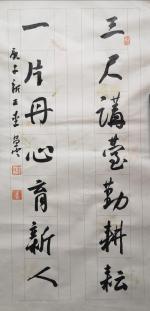 三尺講臺勤耕耘
一片丹心育新人
庚子新正